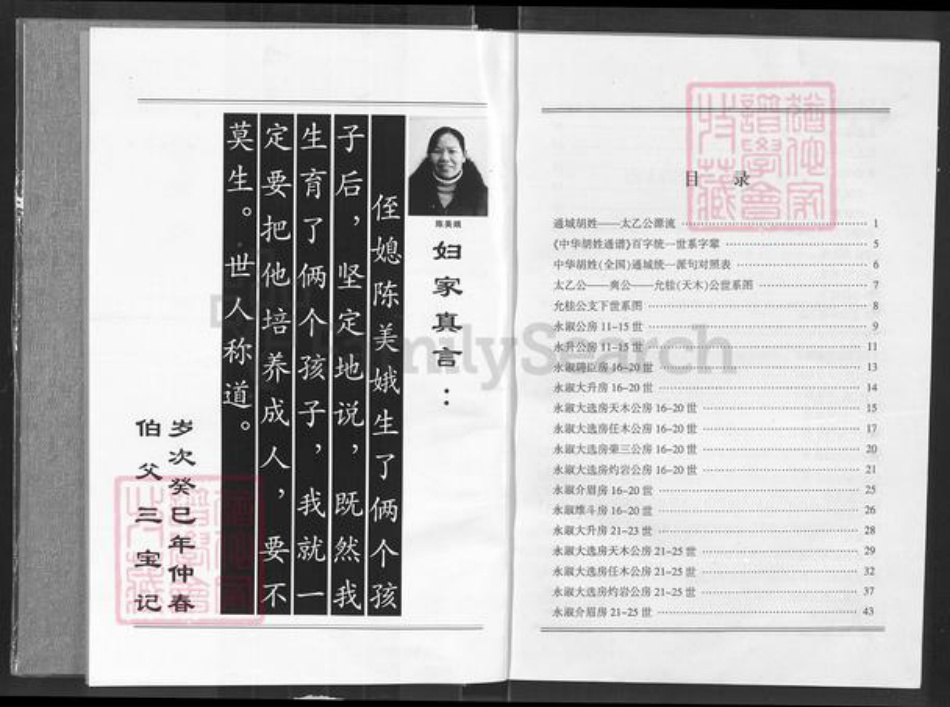 陈美娥
妇家真言：
侄媳陈美娥生了俩个孩
子后，坚定地说，既然我
生育了俩个孩子，我就一
定要把他培养成人，要不
莫生。世人称道。
岁次癸巳年仲春
伯父三宝记
目 录
通城胡姓——太乙公源流 1
《中华胡姓通谱》百字统一世系字辈 5
中华胡姓(全国)通城统一派句对照表 6
太乙公——奭公——允桂(天木)公世系图 7
允桂公支下世系图 8
永淑公房 11-15 世 9
永升公房 11-15 世 11
永淑聘臣房 16-20 世 13
永淑大升房 16-20 世 14
永淑大选房天木公房 16-20 世 15
永淑大选房任木公房 16-20 世 17
永淑大选房荣三公房 16-20 世 20
永淑大选房灼岩公房 16-20 世 21
永淑介眉房 16-20 世 25
永淑维斗房 16-20 世 26
永淑大升房 21-23 世 28
永淑大选房天木公房 21-25 世 29
永淑大选房任木公房 21-25 世 32
永淑大选房灼岩公房 21-25 世 37
永淑介眉房 21-25 世 43
FamilySearch